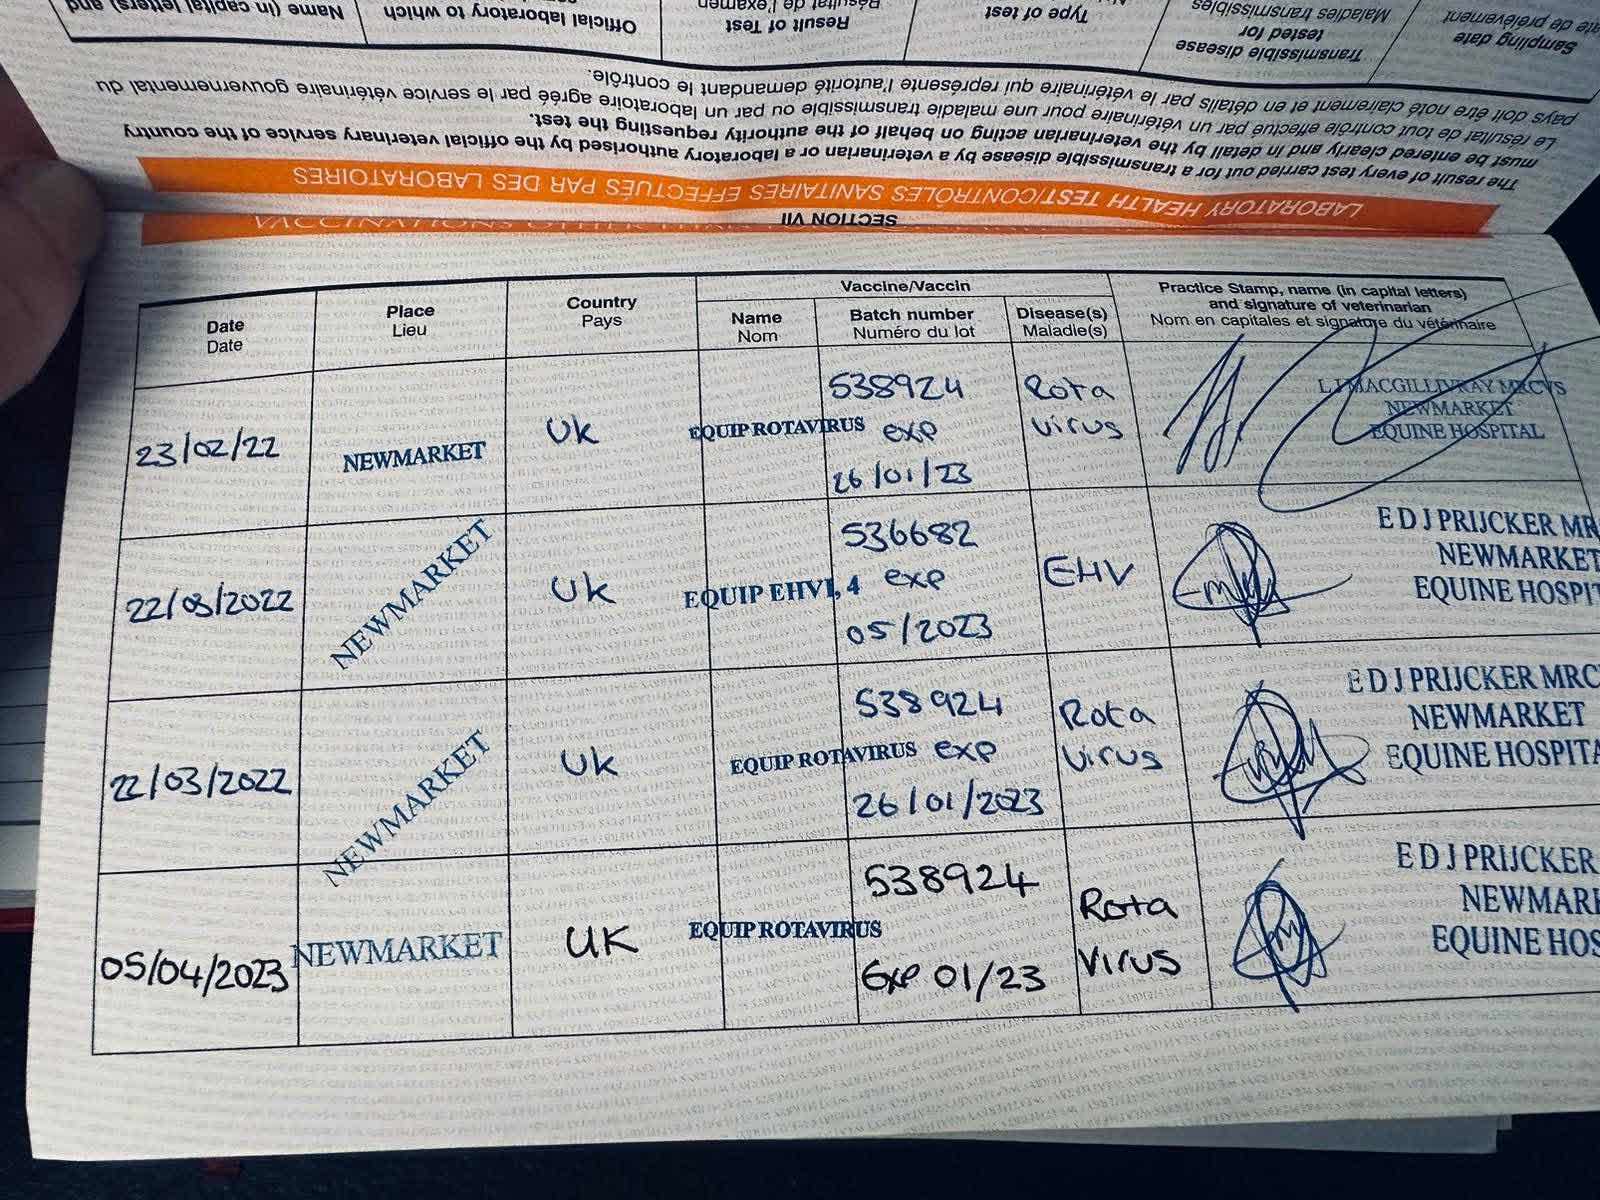 Name (in capital letters) and
Official laboratory to which
Result of Test
Résultat de l'examen
Type of test
Transmissible disease
tested for
Maladies transmissibles
Sampling date
Date de prélèvement
The result of every test carried out for a transmissible disease by a veterinarian or a laboratory authorised by the official veterinary service of the country
must be entered clearly and in detail by the veterinarian acting on behalf of the authority requesting the test.
Le résultat de tout contrôle effectué par un vétérinaire pour une maladie transmissible ou par un laboratoire agréé par le service vétérinaire gouvernemental du
pays doit être noté clairement et en détails par le vétérinaire qui représente l'autorité demandant le contrôle.
LABORATORY HEALTH TEST/CONTRÔLES SANITAIRES EFFECTUÉS PAR DES LABORATOIRES
SECTION VII
VACCINATIONS OTHER
Date
Date
Place
Lieu
Country
Pays
Vaccine/Vaccin
Name
Nom
Batch number
Numéro du lot
Disease(s)
Maladie(s)
Practice Stamp, name (in capital letters)
and signature of veterinarian
Nom en capitales et signature du vétérinaire
23/02/22
NEWMARKET
UK
EQUIP ROTAVIRUS
538924
exp
26/01/23
Rota
virus
L J MACGILLIVRAY MRCVS
NEWMARKET
EQUINE HOSPITAL
22/03/2022
NEWMARKET
UK
EQUIP EHV1, 4
536682
exp
05/2023
EHV
E D J PRIJCKER MR
NEWMARKET
EQUINE HOSPIT
22/03/2022
NEWMARKET
UK
EQUIP ROTAVIRUS
538924
exp
26/01/2023
Rota
virus
E D J PRIJCKER MRC
NEWMARKET
EQUINE HOSPITA
05/04/2023
NEWMARKET
UK
EQUIP ROTAVIRUS
538924
Exp 01/23
Rota
Virus
E D J PRIJCKER
NEWMAR
EQUINE HOS